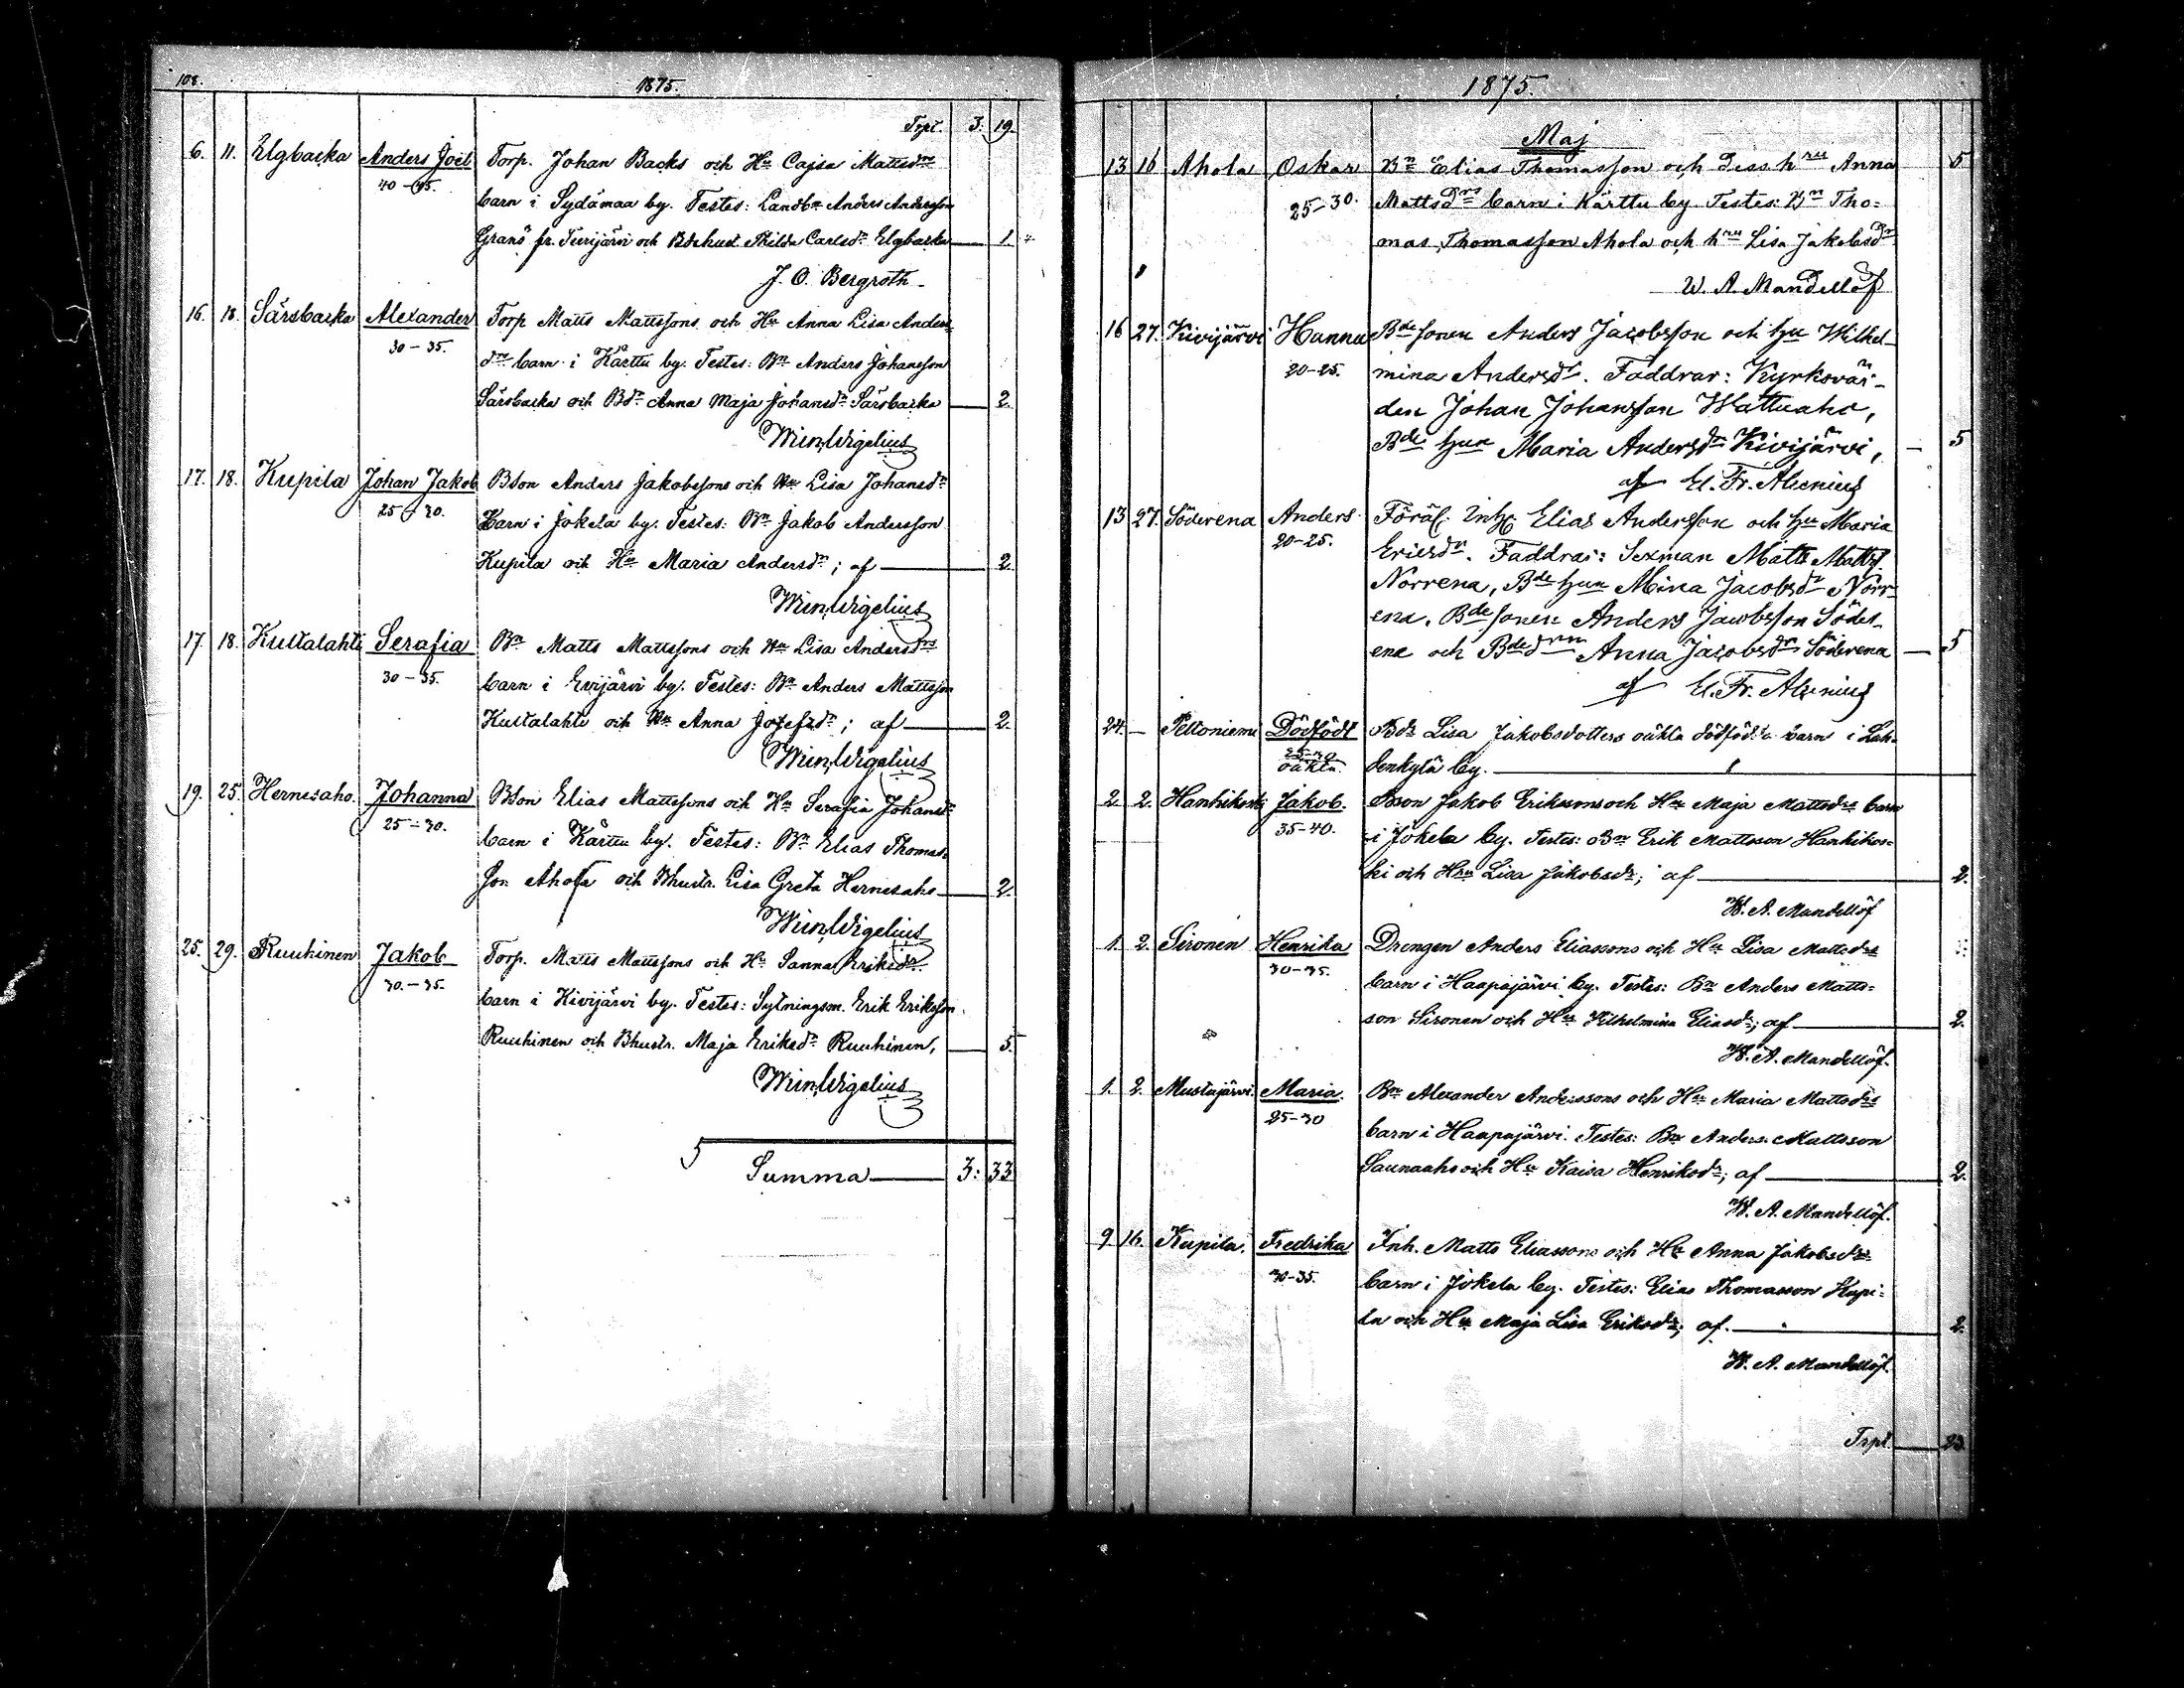 108.
1875.
Trpt. 3. 19.
6. 11. Elgbacka Anders Joel Torp. Johan Backs och Hu Cajsa Mattsdrs
40-45. barn i Sydämaa by. Testes: Landb. Anders Andersson
Granö fr. Terijärvi och Bdehust. Thilda Carlsdr Elgbacka 1
J. O. Bergroth
16. 18. Särsbacka Alexander Torp Matts Mattssons och Hu Anna Lisa Anders-
30-35. drs barn i Kärttu by. Testes: Bn Anders Johansson
Särsbacka och Bdr Anna Maja Johansdr Särsbacka 2.
Wim Wigelius
17. 18. Kupila Johan Jakob Bson Anders Jakobssons och Hu Lisa Johansdr
25-30. barn i Jokela by. Testes: Bn Jakob Andersson
Kupila och Hu Maria Andersdr; af 2.
Wim Wigelius
17. 18. Kultalahti Serafia Bn Matts Mattssons och Hu Lisa Andersdrs
30-35. barn i Evijärvi by. Testes: Bn Anders Mattsson
Kultalahti och Hu Anna Josefsdr; af 2.
Wim Wigelius
19. 25. Hernesaho. Johanna Bson Elias Mattssons och Hu Serafia Johansdr
25-30. barn i Kärttu by. Testes: Bn Elias Thomas-
son Ahola och Bhustr. Lisa Greta Hernesaho 2.
Wim Wigelius
25. 29. Ruuhinen Jakob Torp. Matts Mattssons och Hu Sanna Eriksdr
30.-35. barn i Kivijärvi by. Testes: Sytningsm. Erik Eriksson
Ruuhinen och Bhustr. Maja Eriksdr Ruuhinen, 5.
Wim Wigelius
Summa 3: 33
1875.
Maj
13 16 Ahola Oskar Bn Elias Thomasson och dess hru Anna 5
25-30. Mattsdrs barn i Kärttu by. Testes: Bn Tho-
mas Thomasson Ahola och hru Lisa Jakobsdr
W. A. Mandellöf
16 27. Kivijärvi Hanna Bdesonen Anders Jacobsson och hu Wilhel-
20-25. mina Andersdr. Faddrar: Kyrkovär-
den Johan Johansson Wattuaho,
Bde hun Maria Andersdr Kivijärvi, 5
af E. Fr. Alcenius
13 27. Söderena Anders Inh. Elias Andersson och hu Maria
20-25. Ericsdr. Faddrar: Sexman Matts Matts.
Norrena, Bde hun Mina Jacobsdr Norr-
ena, Bdesonen Anders Jacobsson Söder-
ena och Bdedrn Anna Jacobsdr Söderena 5
af E. Fr. Alcenius
24. – Peltoniemi Dödfödt Bdr Lisa Jakobsdotters oäkta dödfödda barn i Lah-
25-30 oäkta. denkylä by.
2. 2. Hanhikoski Jakob. Bson Jakob Erikssons och Hu Maja Mattsdrs barn
35-40. i Jokela by. Testes: Bn Erik Mattsson Hanhikos-
ki och Hru Lisa Jakobsdr; af 2.
W. A. Mandellöf
1. 2. Sironen Henrika Drengen Anders Eliassons och Hu Lisa Mattsdrs
30-35. barn i Haapajärvi by. Testes: Bn Anders Matts-
son Sironen och Hu Wilhelmina Eliasdr; af 2.
W. A. Mandellöf.
1. 2. Mustajärvi. Maria. Bn Alexander Anderssons och Hu Maria Mattsdrs
25-30 barn i Haapajärvi. Testes: Bn Anders Mattsson
Saunaaho och Hu Kaisa Henriksdr; af 2.
W. A. Mandellöf.
9. 16. Kupila. Fredrika Inh. Matts Eliassons och Hu Anna Jakobsdrs
30-35. barn i Jokela by. Testes: Elias Thomasson Kupi-
la och Hu Maja Lisa Eriksdr; af. 2.
W. A. Mandellöf.
Trpt. 23.